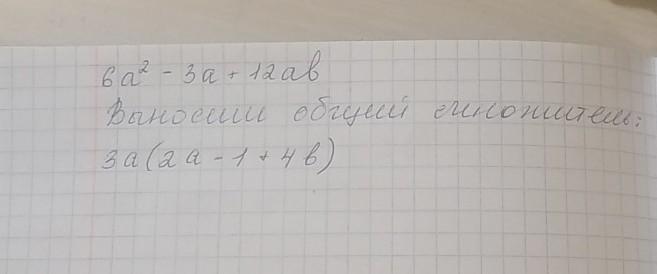 6a² - 3a + 12ab
Выносим общий множитель:
3a(2a - 1 + 4b)